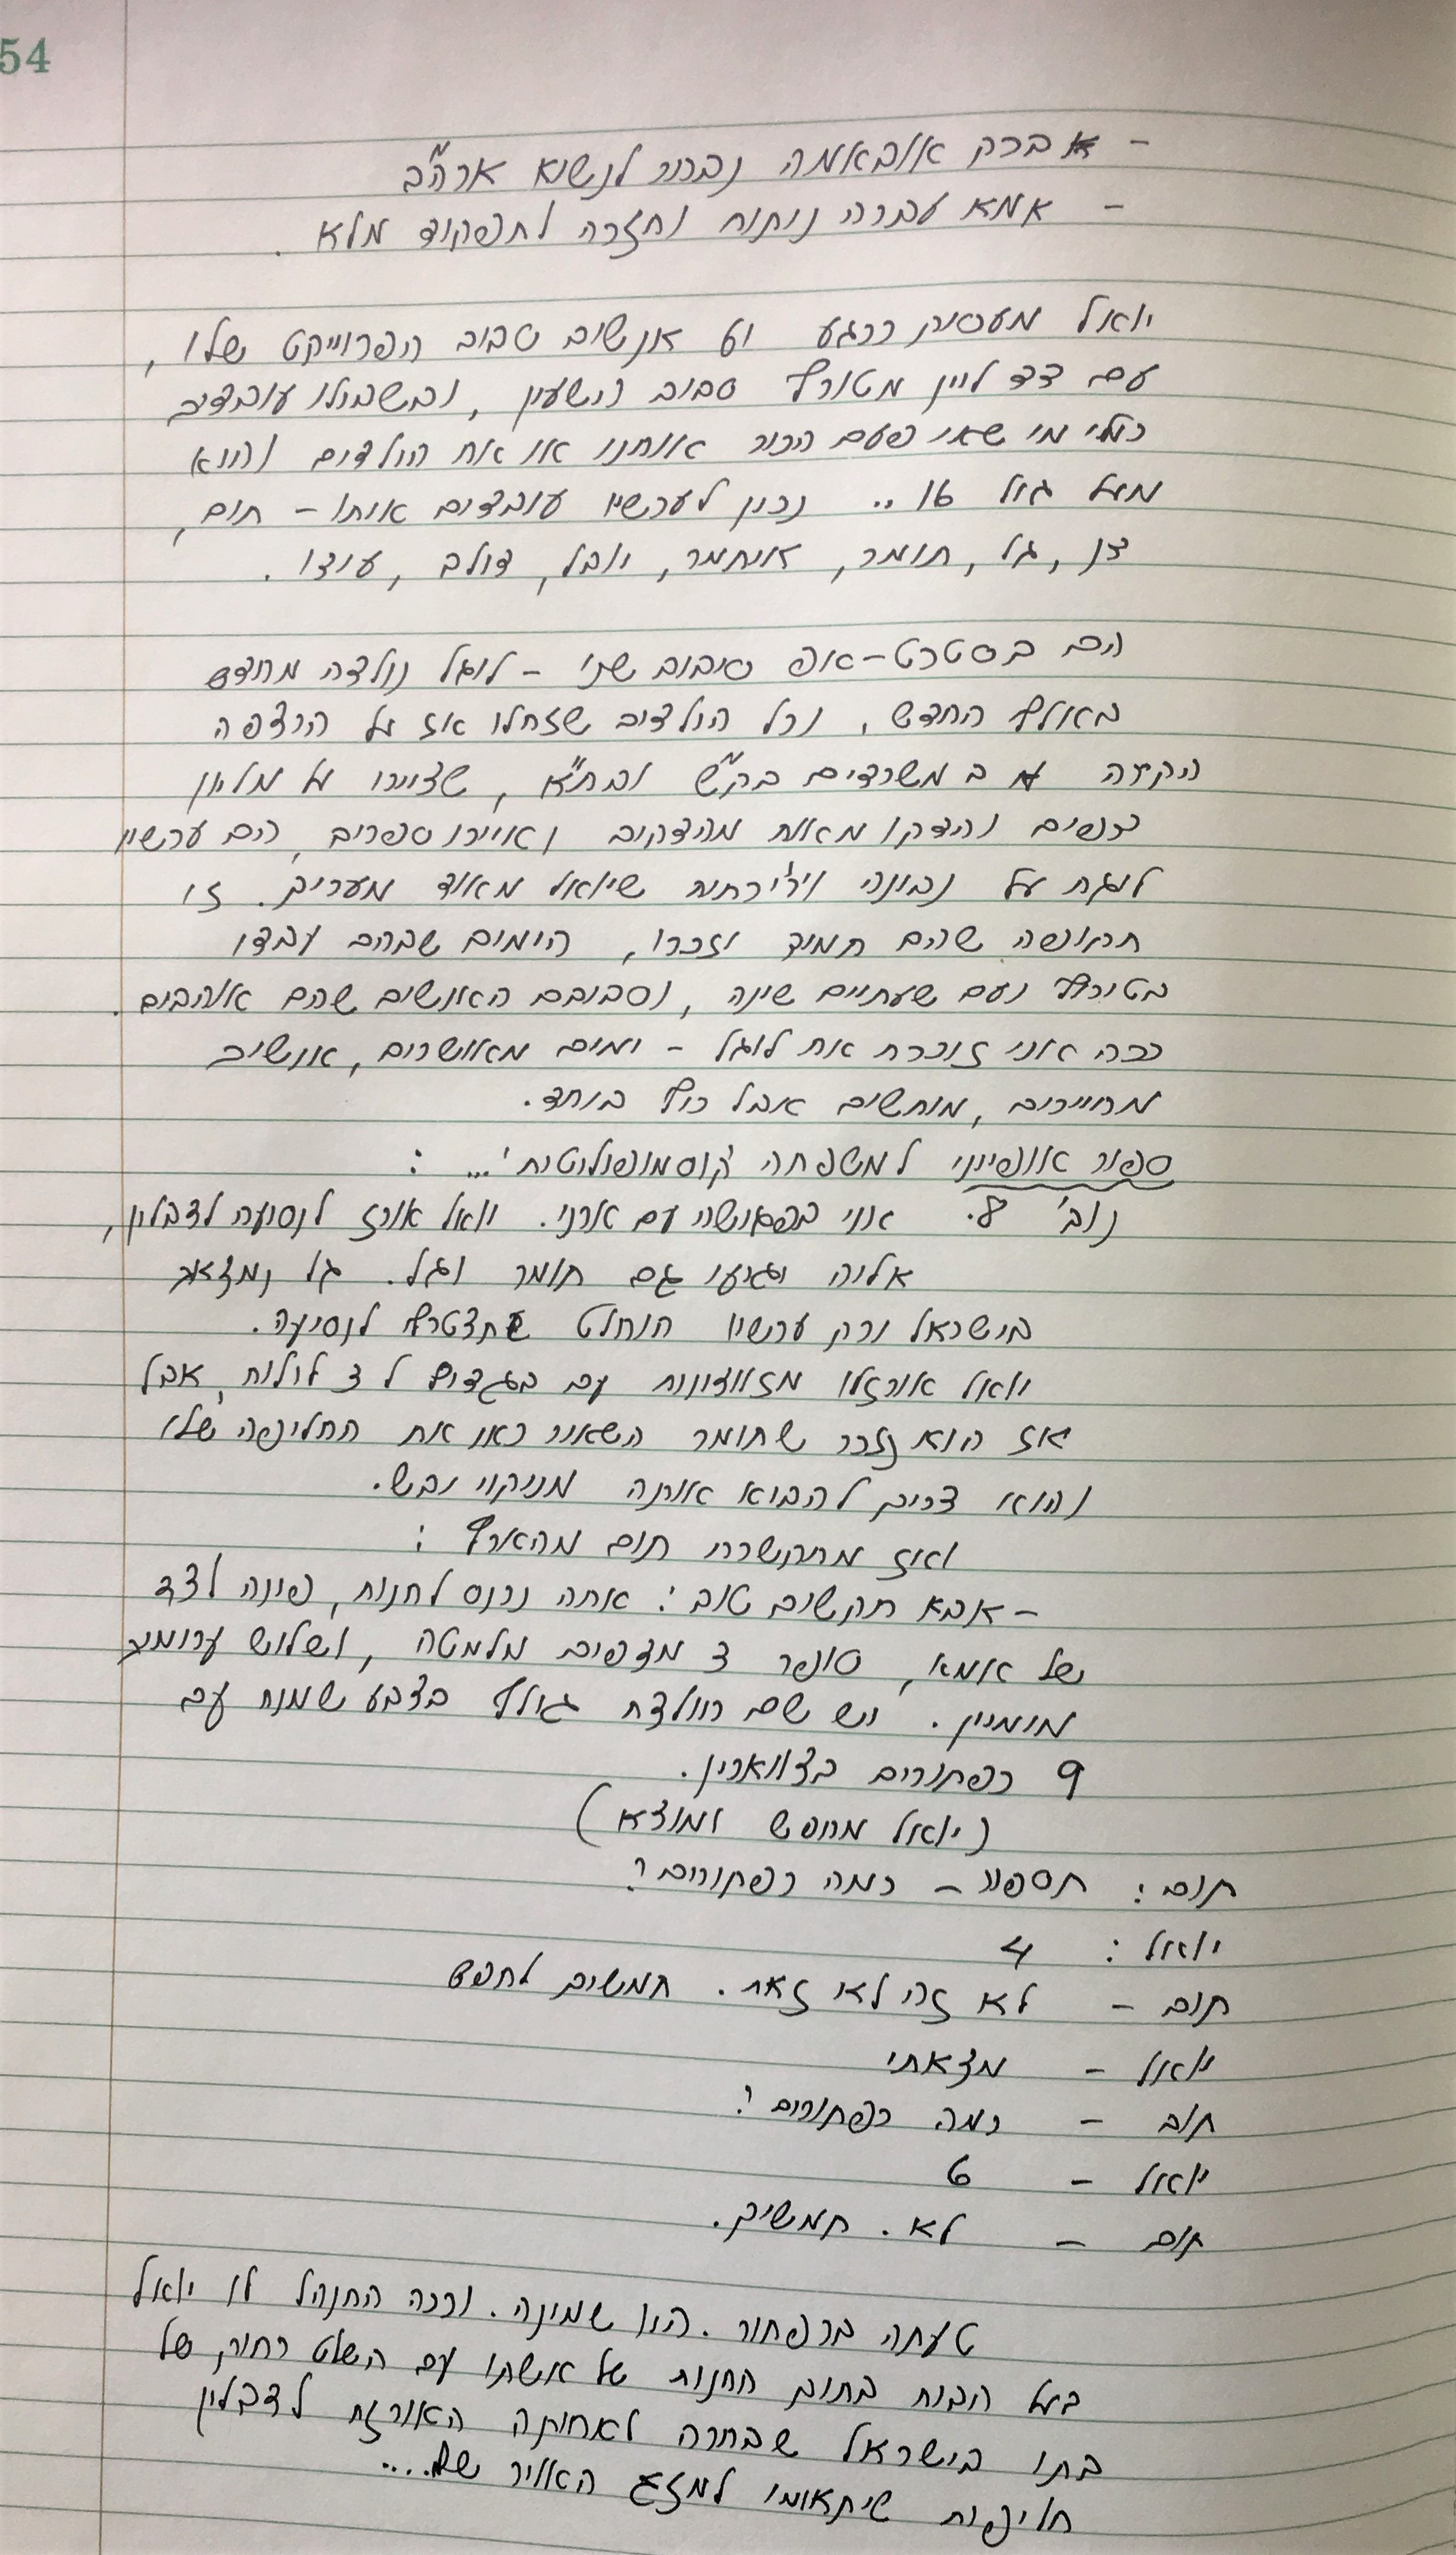 54
- ברק אובאמה נבחר לנשיא ארה"ב
- אמא עברה ניתוח וחזרה לתפקוד מלא.
יואל מעסיק כרגע 19 אנשים סביב הפרוייקט שלו,
עם דד ליין מטורף סביב השעון, ובשבילו עובדים
כולי מי שאי פעם הכיר אותנו או את הילדים והוא
מעל גיל 16.. נכון לעכשיו עובדים איתו - תום,
דן, גל, תומר, איתמר, יובל, דולב, עידו.
הם בסטרט-אפ סיבוב שני - לוגל נולדה מחדש
באלף החדש, וכל הילדים שזחלו אז על הרצפה
הקרה ב משרדים בק"ש ובת"א, שציירו על מליון
דפים והדקו מאות מהדקים ואיירו ספרים, הם עכשיו
לוגת על נבונה ויצירתית שיואל מאוד מעריך. זו
תקופה שהם תמיד יזכרו, הימים שבהם עבדו
בטירוף ועם שעתיים שינה, וסביבם האנשים שהם אוהבים.
ככה אני זוכרת את לוגל - ימים מאושרים, אנשים
מחוייכים, מותשים אבל כיף ביחד.
ספור אופייני למשפחה קוסמופוליטית'... :
נוב' 8. אני בפגישה עם ארני. יואל אורז לנסיעה לדבלין,
אליה יגיעו גם תומר וגל. גל נמצאת
בישראל ורק עכשיו הוחלט שתצטרף לנסיעה.
יואל אורזלו מזוודונת עם בגדים ל 3 לילות, אבל
אז הוא נזכר שתומר השאיר כאן את החליפה שלו
והוא צריך להביא אותה מניקוי יבש.
ואז מתקשרת תום מהארץ:
- אבא תקשיב טוב: אתה נכנס לחנות, פונה לצד
של אמא, סופר 3 מדפים מלמטה, ושלוש ערומות
מימין. יש שם רוולדת גולף בצבע שמנת עם
9 כפתורים בצווארון.
(יואל מחפש ומוצא)
תום: תספור - כמה כפתורים?
יואל: 4
תום - לא זה לא זאת. תמשיך לחפש
יואל - מצאתי
תום - כמה כפתורים?
יואל - 6
תום - לא. תמשיך.
טעתה בכפתור. היו שמונה. וככה התנהל לו יואל
בעל הבית בתוך החנות של אשתו עם השלט רחוק של
בתו בישראל שבחרה לאחותה האורזת לדבלין
חליפות שיתאימו למזג האויר שם....